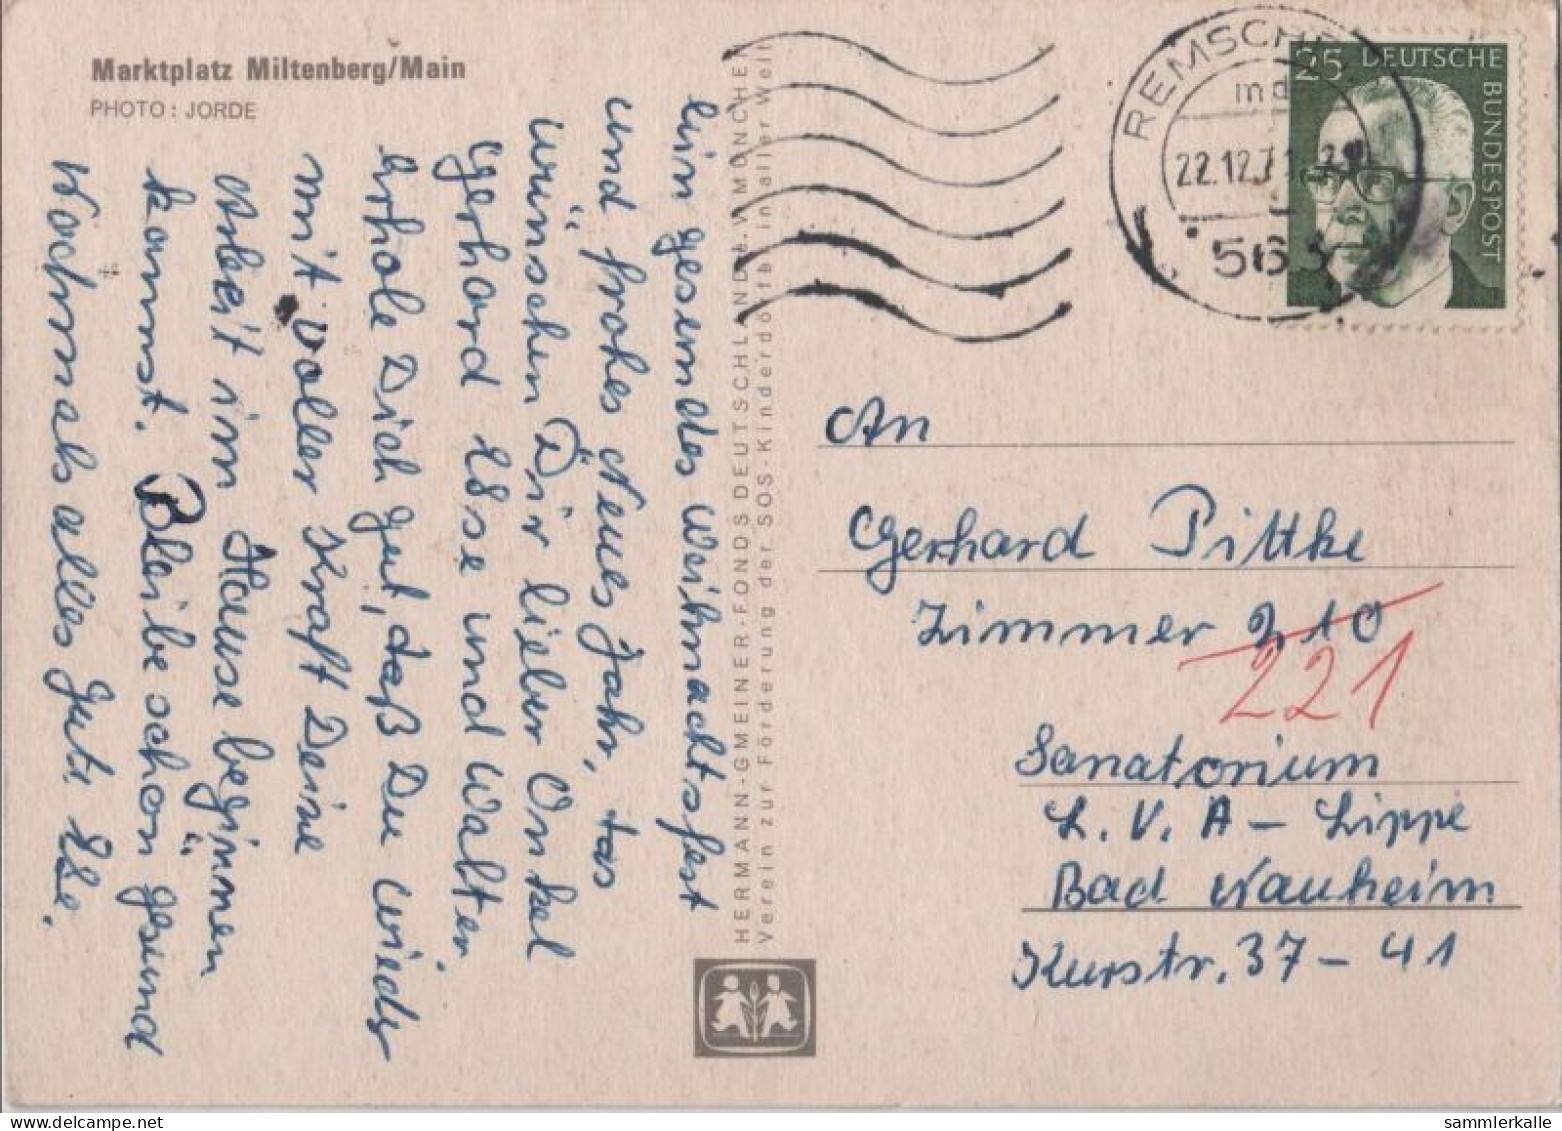 Marktplatz Miltenberg/Main
PHOTO: JORDE
Ein gesundes Weihnachtsfest
und frohes Neues Jahr, das
wünschen Dir lieber Onkel
Gerhard Ilse und Walter.
Erhole Dich gut, daß Du wieder
mit voller Kraft Deine
Arbeit im Hause beginnen
kannst. Bleibe schön gesund
Nochmals alles Gute Ilse.
HERMANN-GMEINER-FONDS DEUTSCHLAND e.V. MÜNCHEN
Verein zur Förderung der SOS-Kinderdörfer in aller Welt
REMSCHE
22.12.7
563
25 DEUTSCHE
BUNDESPOST
An
Gerhard Pittke
Zimmer 210
221
Sanatorium
L.V.A - Lippe
Bad Nauheim
Kurstr. 37 - 41
sammlerkalle